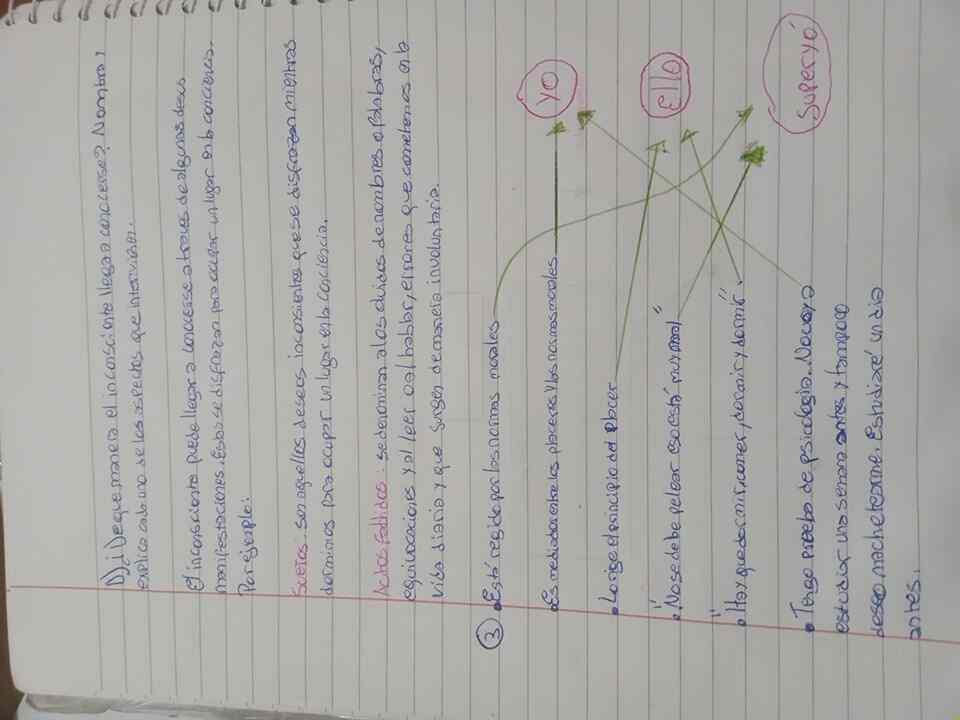 1) ¿De que manera el inconsciente llega a conocerse? Nombra y
explica cada uno de los aspectos que intervienen.
El inconsciente puede llegar a conocerse a traves de algunas de sus
manifestaciones. Estas se disfrazan para ocupar un lugar en la conciencia.
Por ejemplo:
Sueños: son aquellos deseos inconsientes que se disfrazan mientras
dormimos para ocupar un lugar en la conciencia.
Actos fallidos: se denominan a los olvidos de nombres o palabras,
equivocaciones y al leer o al hablar, errores que cometemos en la
vida diaria y que surgen de maneta involuntaria.
3 • Está regido por las normas morales
• Es mediador entre los placeres y las normas morales
• Lo rige el principio del placer
• "No se debe pelear eso está muy mal"
• "Hay que dormir, comer, dormir y dormir"
• Tengo prueba de psicologia. No voy a
estudiar una semana antes y tampoco
deseo machetearme. Estudiaré un dia
antes.
YO
Ello
Superyó